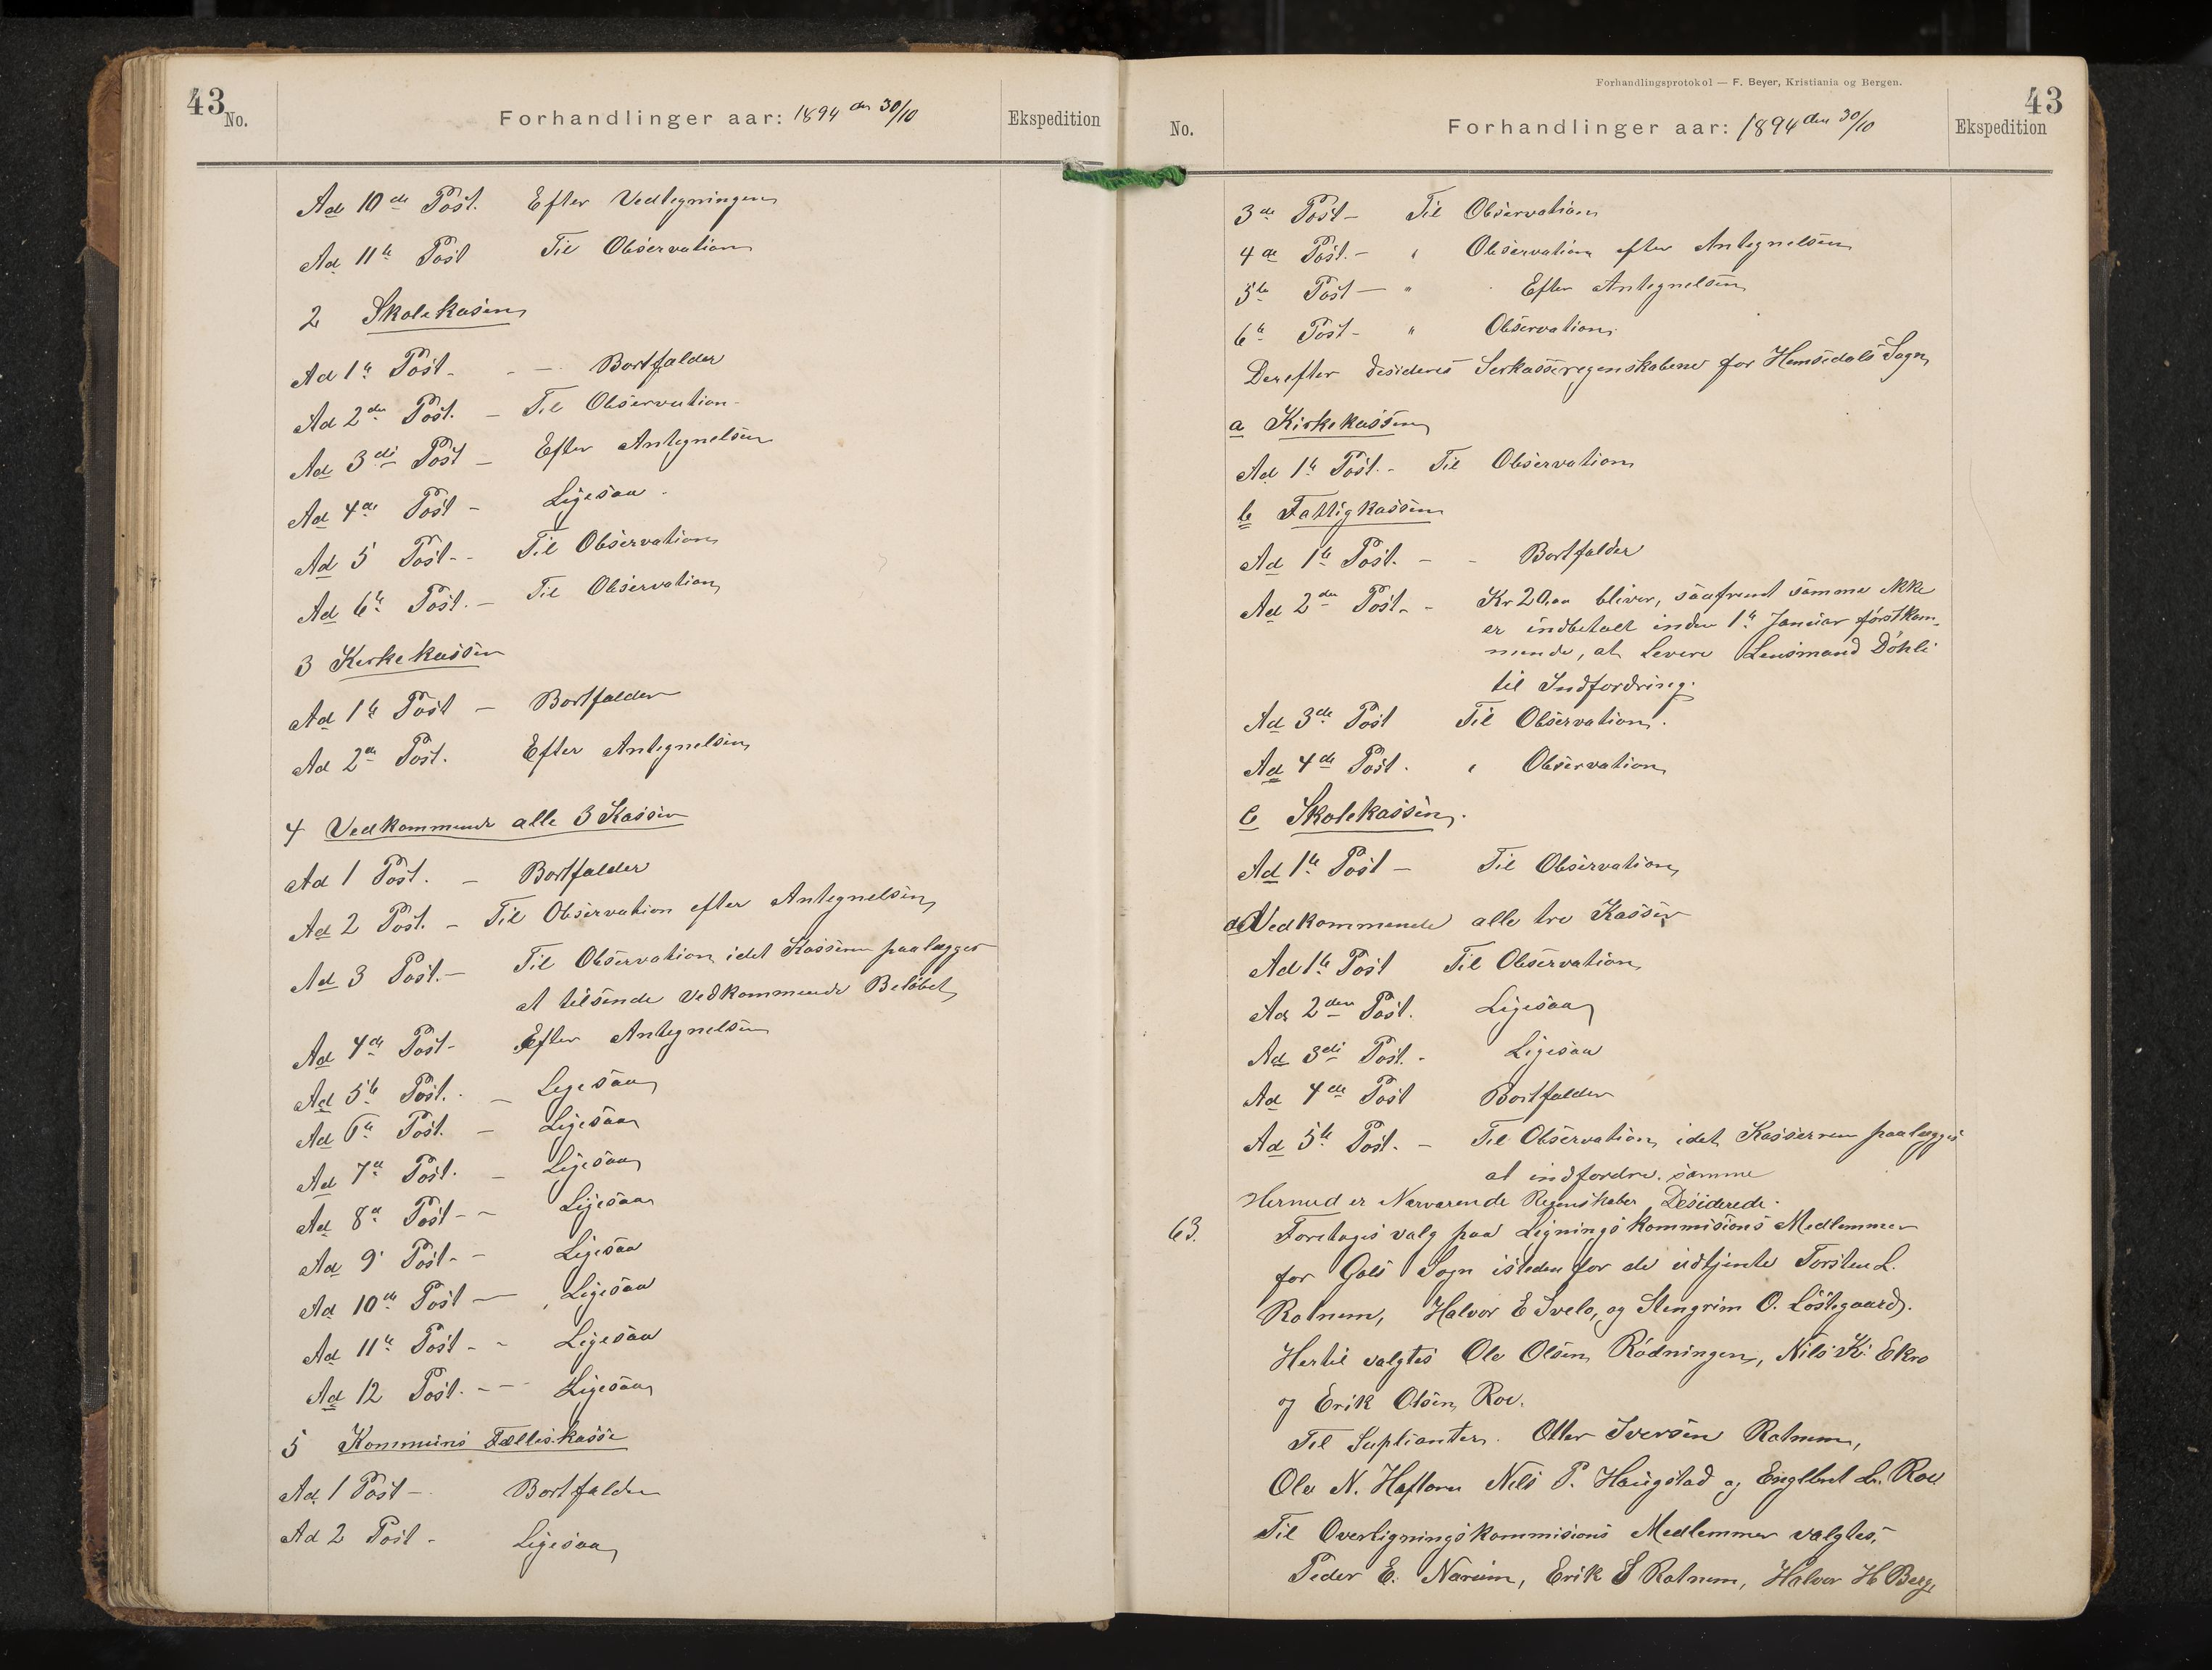 43
No.
Forhandlinger aar: 1894 den 30/10
Ekspedition
Ad 10de Post. Efter Vedtegningen
Ad 11te Post Til Observation
2 Skolekasen
Ad 1te Post - - - Bortfalder
Ad 2den Post. - Til Observation -
Ad 3die Post - Efter Antegnelsen
Ad 4de Post - Ligesaa .
Ad 5 Post - - Til Observation
Ad 6te Post. - Til Observation
3 Kirkekassen
Ad 1te Post - Bortfalder
Ad 2den Post. Efter Antegnelsen
4 Vedkommende alle 3 Kasser
Ad 1 Post. - Bortfalder
Ad 2 Post. - Til Observation efter Antegnelsen
Ad 3 Post. - Til Observation idet Kasseren paalægges
at tilsende Vedkommende Beløbet
Ad 4de Post - Efter Antegnelsen
Ad 5te Post. - Ligesaa
Ad 6te Post. - Ligesaa
Ad 7de Post. - Ligesaa
Ad 8de Post - - Ligesaa
Ad 9 Post - - Ligesaa
Ad 10de Post - Ligesaa
Ad 11te Post - - Ligesaa
Ad 12 Post. - - Ligesaa
5 Kommuns Fælleskasse
Ad 1 Post - Bortfalder
Ad 2 Post - Ligesaa
Forhandlingsprotokol — F. Beyer, Kristiania og Bergen.
43
No.
Forhandlinger aar: 1894 den 30/10
Ekspedition
3de Post - Til Observation
4de Post. - " Observation efter Antegnelsen
5te Post - " Efter Antegnelsen
6te Post - " Observation
Derefter desideres Serkasseregenskabene for Hemsedals Sogn
a Kirkekassen
Ad 1te Post. - Til Observation
b Fattigkassen
Ad 1te Post. - - Bortfalder
Ad 2den Post. - Kr 20,00 bliver, saafremt samme ikke
er indbetalt inden 1te Januar førstkom-
mende, at levere Lensmand Døhli
til Indfordring.
Ad 3de Post Til Observation.
Ad 4de Post. " Observation
c Skolekassen.
Ad 1te Post - Til Observation
d Vedkommende alle tre Kasser
Ad 1te Post Til Observation
Ad 2den Post. Ligesaa
Ad 3die Post. - Ligesaa
Ad 4de Post Bortfalder
Ad 5te Post. - Til Observation idet Kasseren paalægges
at indfordre samme
Hermed er Nærværende Regnskaber Desiderede.
63. Foretoges valg paa Ligningskommisions Medlemmer
for Gols Sogn isteden for de udtjente Torsten L.
Rotnem, Halvor E Svelo, og Stengrim O. Løstegaard.
Hertil valgtes Ole Olsen Rødningen, Nils K. Ekro
og Erik Olsen Roe.
Til Suplianter. Otter Iversen Rotnem,
Ole N. Haftorn Nils P. Haugstad og Englbret L. Roe
Til Overligningskommisions Medlemmer valgtes,
Peder E. Narum, Erik E Rotnem, Halvor H Berg